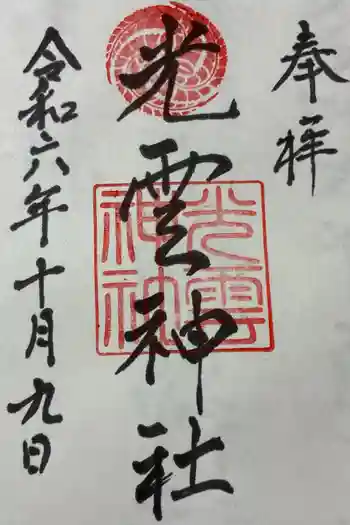 奉拝
光雲神社
光雲神社
令和六年十月九日